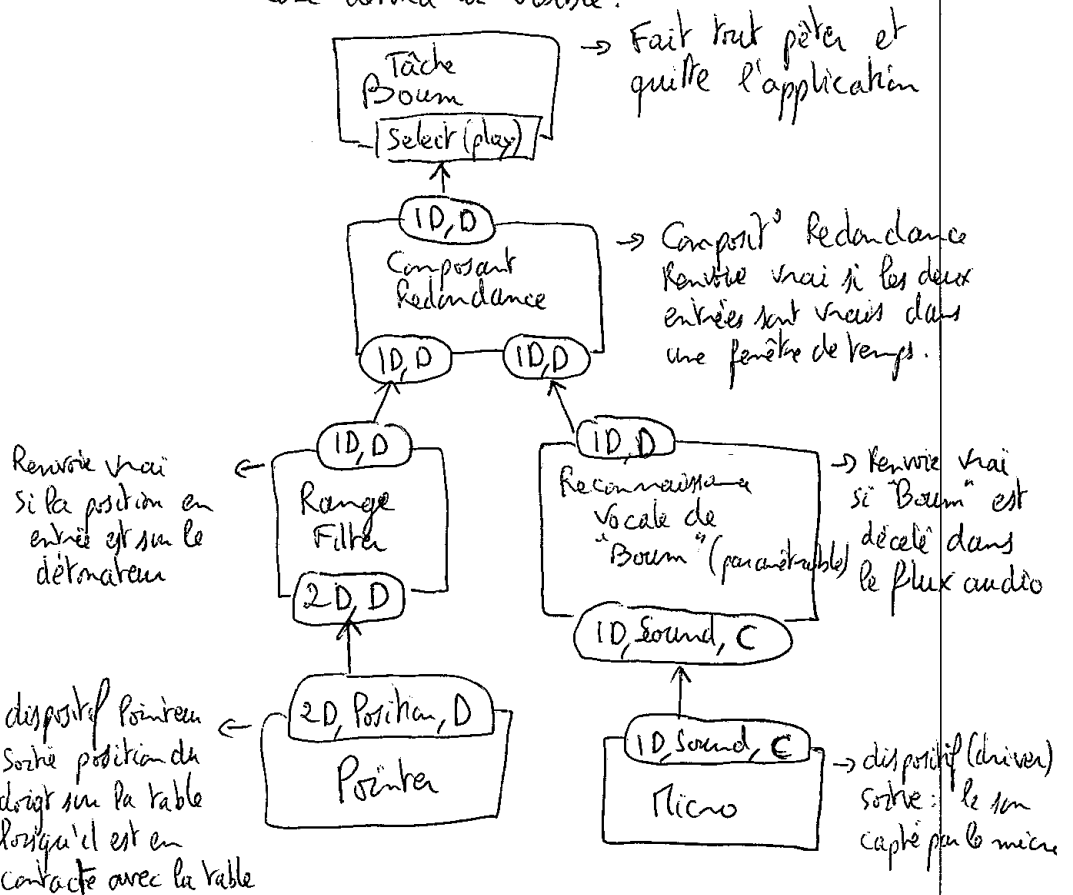 Tâche
Boum
Select (play)
→ Fait tout péter et
quitte l'application
1D, D
Composant
Redondance
→ Composit° Redondance
Renvoie vrai si les deux
entrées sont vrais dans
une fenêtre de temps.
1D, D
1D, D
Renvoie vrai
si la position en
entrée est sur le
détonateur
1D, D
Range
Filter
2D, D
1D, D
Reconnaissance
vocale de
"Boum" (paramétrable)
1D, Sound, C
→ Renvoie vrai
si "Boum" est
décelé dans
le flux audio
dispositif Pointeur
Sortie position du
doigt sur la table
lorsqu'il est en
contacte avec la table
2D, Position, D
Pointer
1D, Sound, C
Micro
→ dispositif (driver)
sortie : le son
capté par le micro